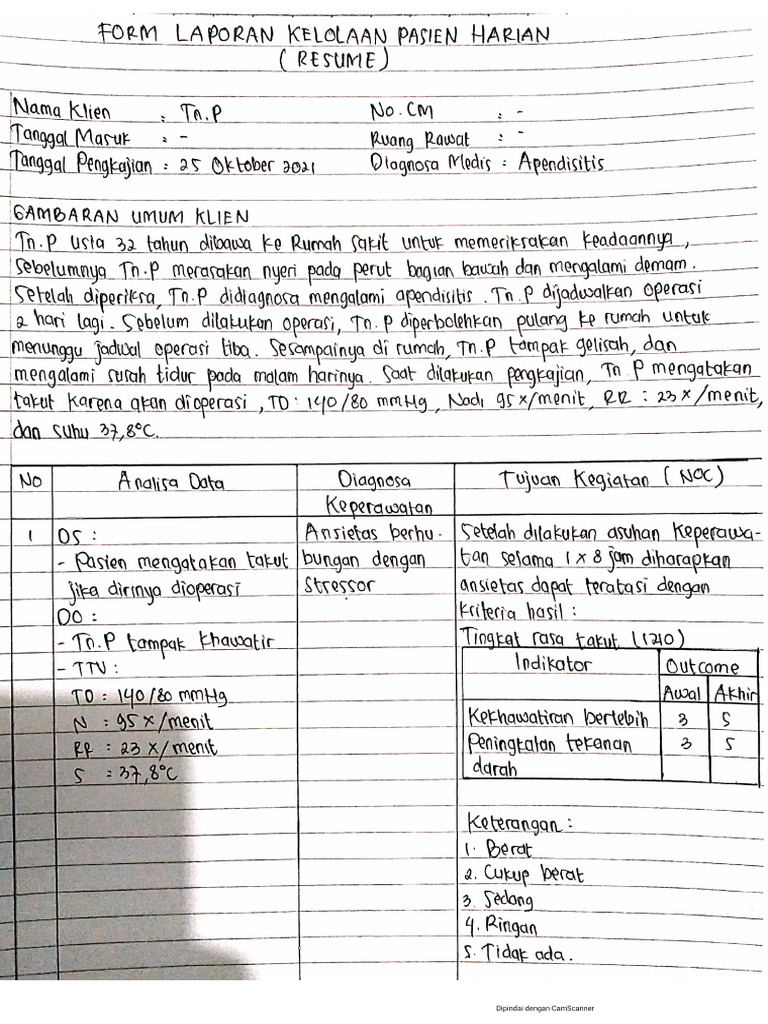 FORM LAPORAN KELOLAAN PASIEN HARIAN
(RESUME)
Nama Klien : Tn.P No.CM : -
Tanggal Masuk : - Ruang Rawat : -
Tanggal Pengkajian : 25 Oktober 2021 Diagnosa Medis : Apendisitis
GAMBARAN UMUM KLIEN
Tn.P usia 32 tahun dibawa ke Rumah sakit untuk memeriksakan keadaannya,
sebelumnya Tn.P merasakan nyeri pada perut bagian bawah dan mengalami demam.
Setelah diperiksa, Tn.P didiagnosa mengalami apendisitis. Tn.P dijadwalkan operasi
2 hari lagi. Sebelum dilakukan operasi, Tn.P diperbolehkan pulang ke rumah untuk
menunggu jadwal operasi tiba. Sesampainya di rumah, Tn.P tampak gelisah, dan
mengalami susah tidur pada malam harinya. Saat dilakukan pengkajian, Tn P mengatakan
takut karena akan dioperasi, TD: 140/80 mmHg, Nadi 95 x/menit, RR : 23 x/menit,
dan suhu 37,8°C.
No Analisa Data Diagnosa Keperawatan Tujuan Kegiatan (NOC)
1 DS :
- Pasien mengatakan takut
jika dirinya dioperasi
DO :
- Tn.P tampak khawatir
- TTV :
TD : 140/80 mmHg
N : 95 x/menit
RR : 23 x/menit
S : 37,8°C
Ansietas berhu-
bungan dengan
stressor
Setelah dilakukan asuhan Keperawa-
tan selama 1 x 8 jam diharapkan
ansietas dapat teratasi dengan
kriteria hasil :
Tingkat rasa takut (1210)
Indikator Outcome
Awal Akhir
Kekhawatiran berlebih 3 5
Peningkatan tekanan 3 5
darah
Keterangan :
1. Berat
2. Cukup berat
3. Sedang
4. Ringan
5. Tidak ada.
Dipindai dengan CamScanner